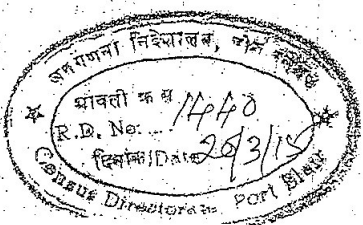 जनगणना निदेशालय, पोर्ट ब्लेयर
आवती क्र सं 1440
R.D. No.
दिनांक/Date 26/3/15
Census Directorate Port Blair